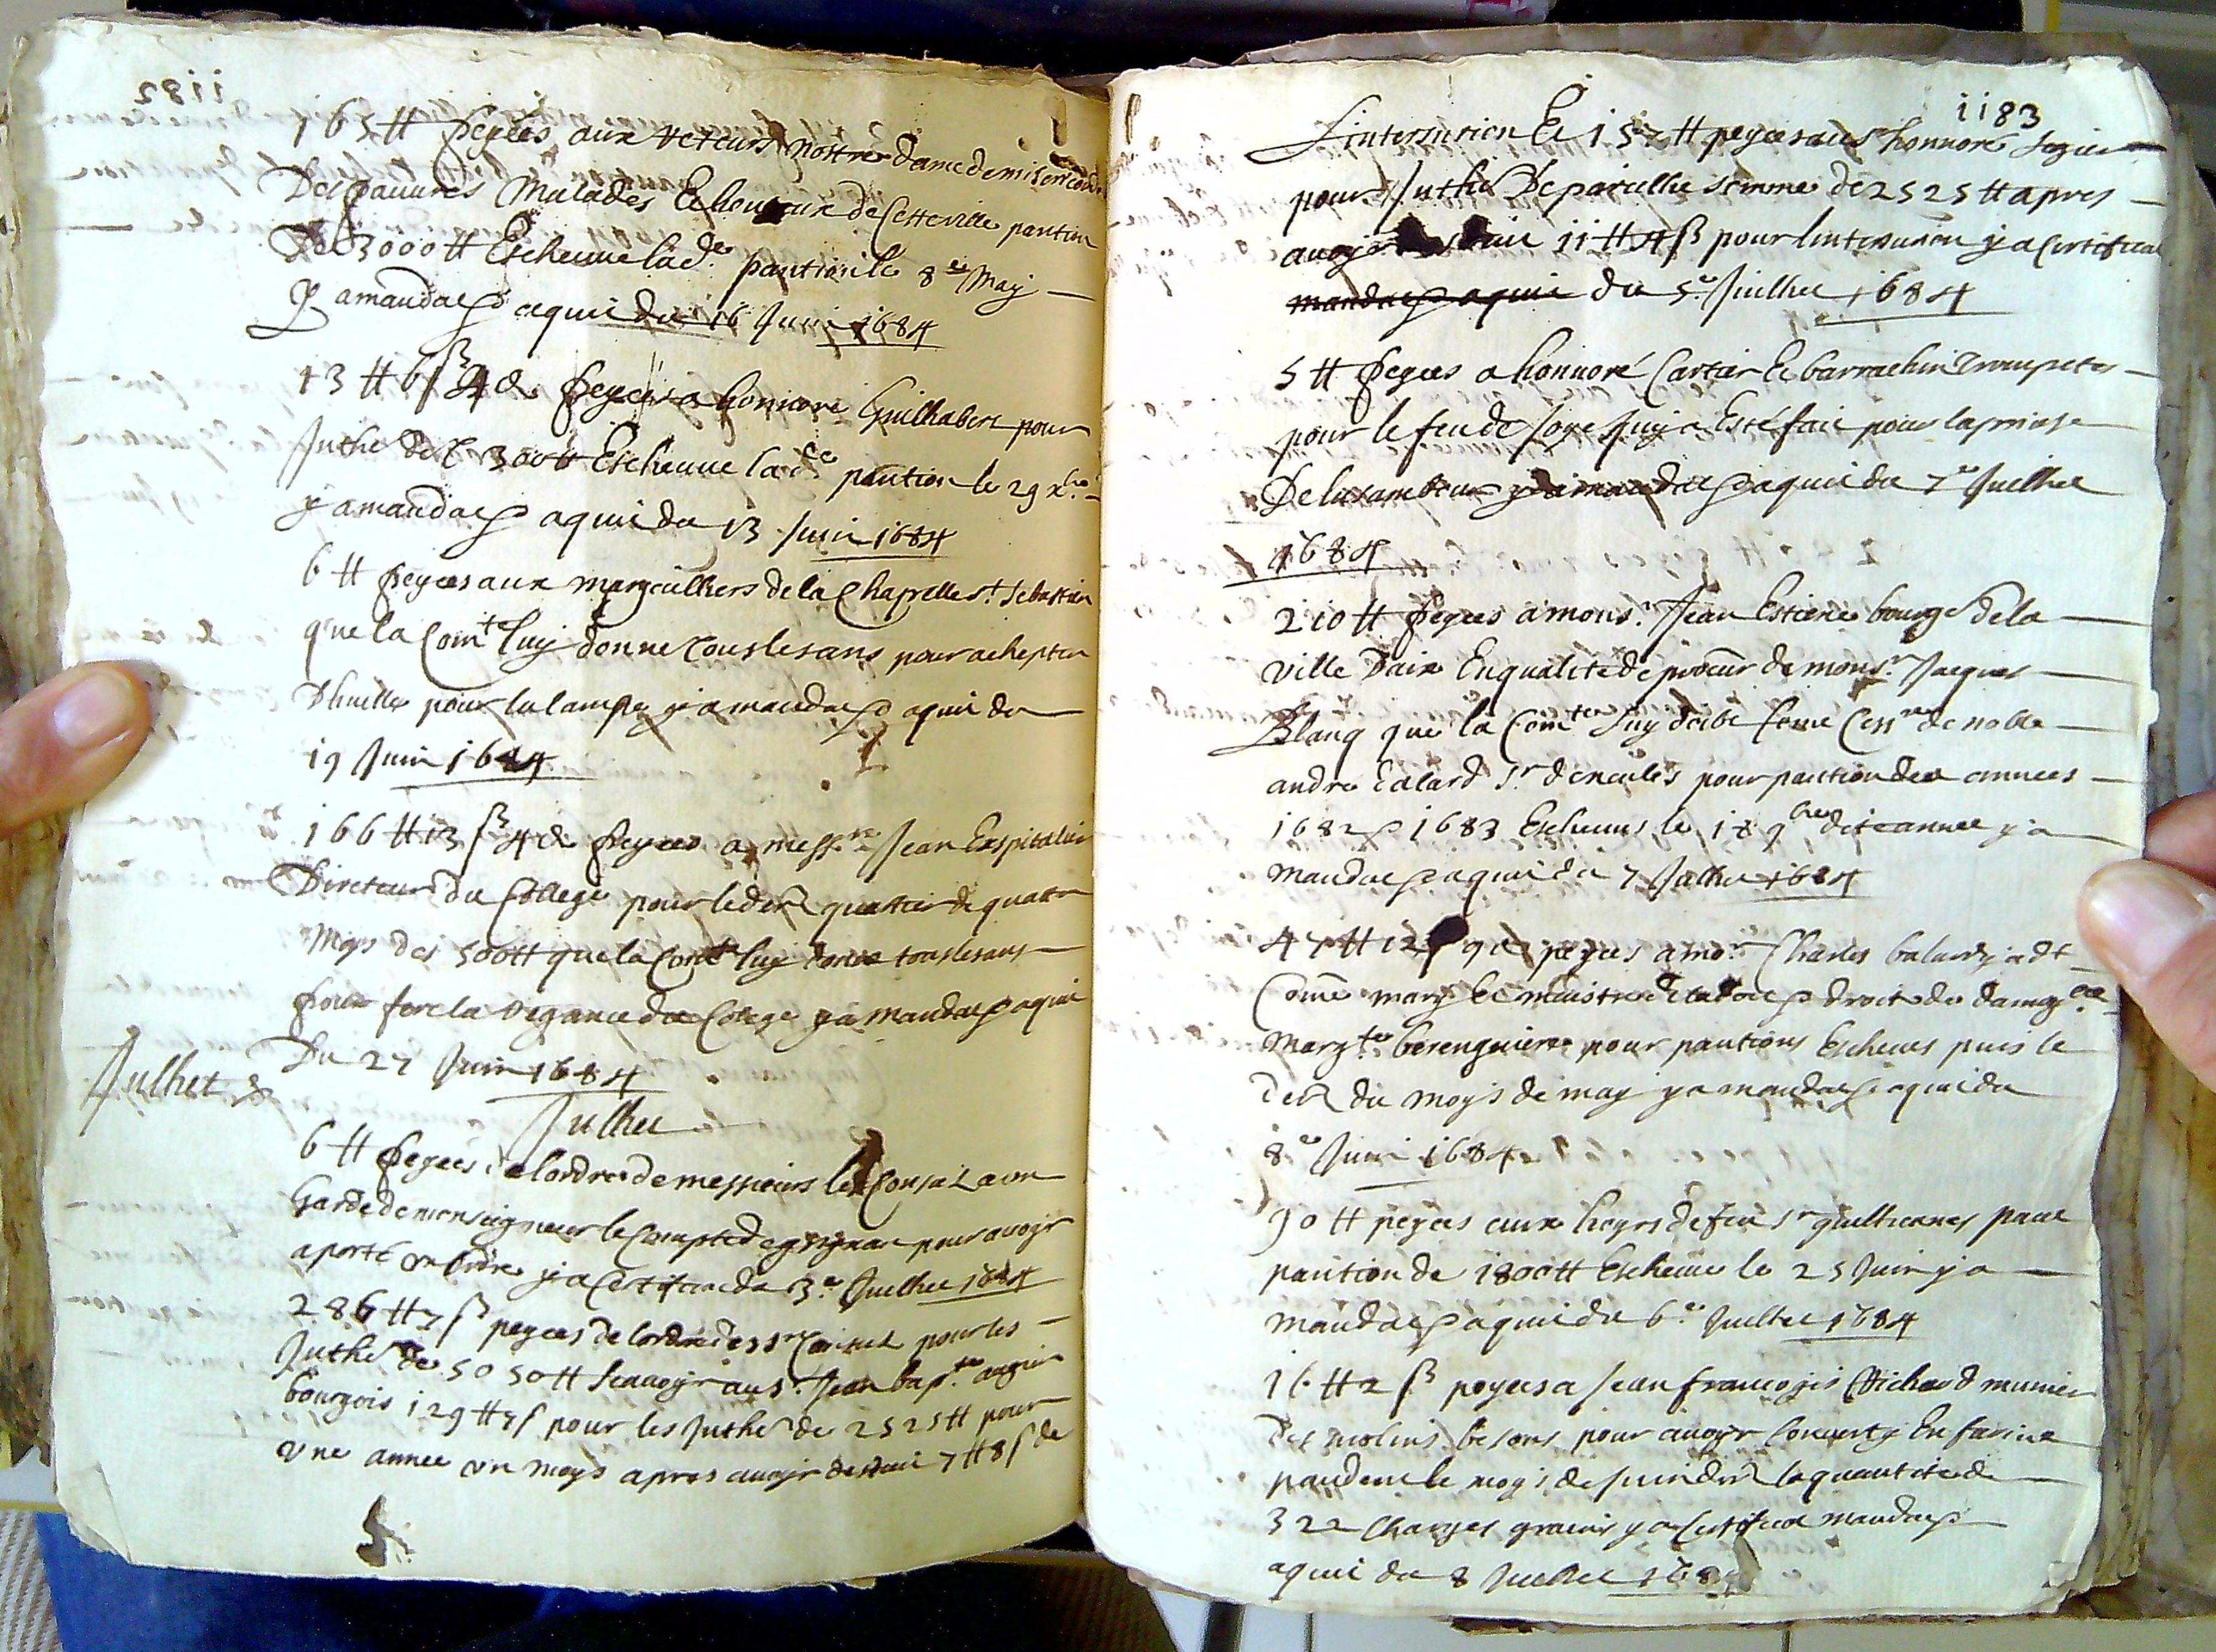 1182
165 tt peyées aux recteurs nostre dame de misericorde
Des pauures Malades Et honteux de Cette ville pantion
De 3000 tt Escheuue lad.e pantion le 8.e May
Y a mandat et aquit du 16 Juin 1684
13 tt 6 ß 4 d peyées a honnore Guilhabert pour
Inthe de 300 tt Escheuue lad.e pantion le 29 x.bre
y a mandat et aquit du 13 Juin 1684
6 tt peyees aux marguilliers de la Chapelle s.t Sebastien
que la Com.té luy donne tous les ans pour achepter
Dhuille pour la lampe y a mandat et aquit du
19 Juin 1684
166 tt 13 ß 4 d peyees a mess.re Jean Espitalier
Directeur du College pour le der quartier de quatre
Moys des 500 tt que la Com.té luy donne tous les ans
pour fere la Regance du Colege y a mandat et aquit
Du 27 Juin 1684
Julhet
Julhet
6 tt peyées de lordre de messieurs les Consuls a un
Garde de monseigneur le Compte de grignan pour auoyr
aporté un ordre y a Certificat du 3.e Juilhet 1684
286 tt 7 ß peyees de lordre de ss.rs Consuls pour les
Inthe de 5050 tt scauoyr au s.r Jean bap.te augier
bourgois 129 tt 7 ß pour les Inthe de 2525 tt pour
une annee un moys apres auoyr destrait 7 tt 8 ß de
1183
Linterusion Et 157 tt peyees au s.r honnoré
pour Inthe De pareilhe somme de 2525 tt apres
auoyr destrait 11 tt 4 ß pour linterusion y a Certificat
mandat et aquit du 5.e Juilhet 1684
5 tt peyees a honnoré Cartier Et barrachin trompetes
pour le feu de Joye quy a Esté fait pour la prinse
De luxambour y a mandat et aquit du 7.e Juilhet
1684
210 tt peyees a mons.r Jean Estiene bourgs de la
ville Daix En qualité de procur de mons.r Jacques
Blanq que la Com.té luy doibt Come Cess.re de noble
andre s.r pour pantion des annees
1682 et 1683 Escheues le 18 9.bre dite annee y a
mandat et aquit du 7 Julhet 1684
47 tt 12 ß 9 d peyees a mo.r Charles
Come mary Et maistre de la dot et droits de damoy.lle
marg.te berenguiere pour pantions Escheues puis le
der du moys de may y a mandat et aquit du
8.e Juin 1684
90 tt peyees aux hoyrs de feu s.r pour
pantion de 1800 tt Escheue le 25 Juin y a
mandat et aquit du 6.e Juilhet 1684
16 tt 2 ß peyees a Jean francoys Michard munier
Des molins besons pour auoyr Conuerty En farine
pandant le moys de Juin der la quantite de
322 Charges grains y a Certificat mandat et
aquit du 8 Juilhet 168